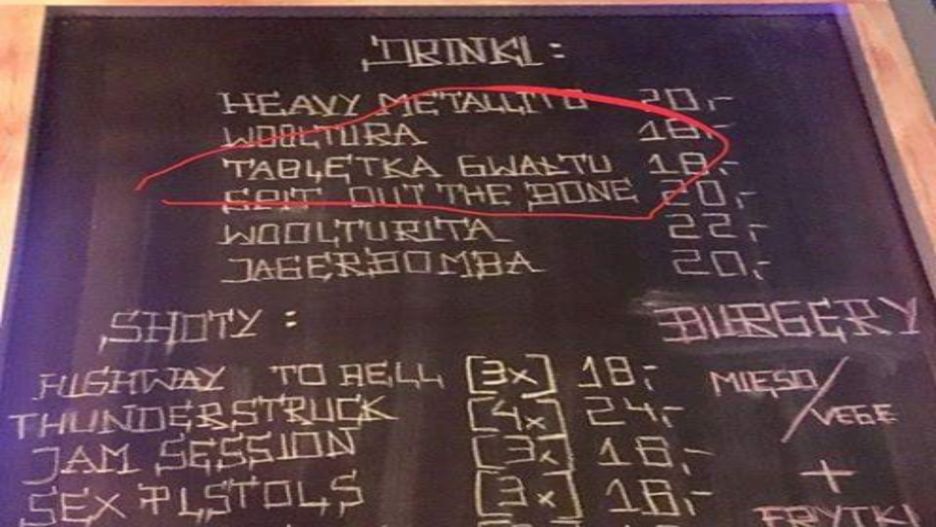 DRINKI:
HEAVY METALLITO 20,-
WOOLTURA 18,-
TABLETKA GWAŁTU 18,-
SPIT OUT THE BONE 20,-
WOOLTURITA 22,-
JAGERBOMBA 20,-
SHOTY:
HIGHWAY TO HELL [3x] 18,-
THUNDERSTRUCK [4x] 24,-
JAM SESSION [3x] 18,-
SEX PISTOLS [3x] 18,-
BURGERY
MIĘSO/
VEGE
+
FRYTKI